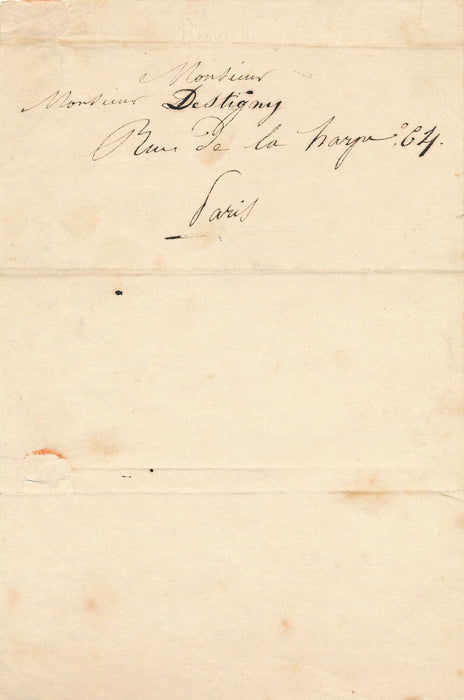 Monsieur
Monsieur Destigny
Rue de la harpe 64.
Paris